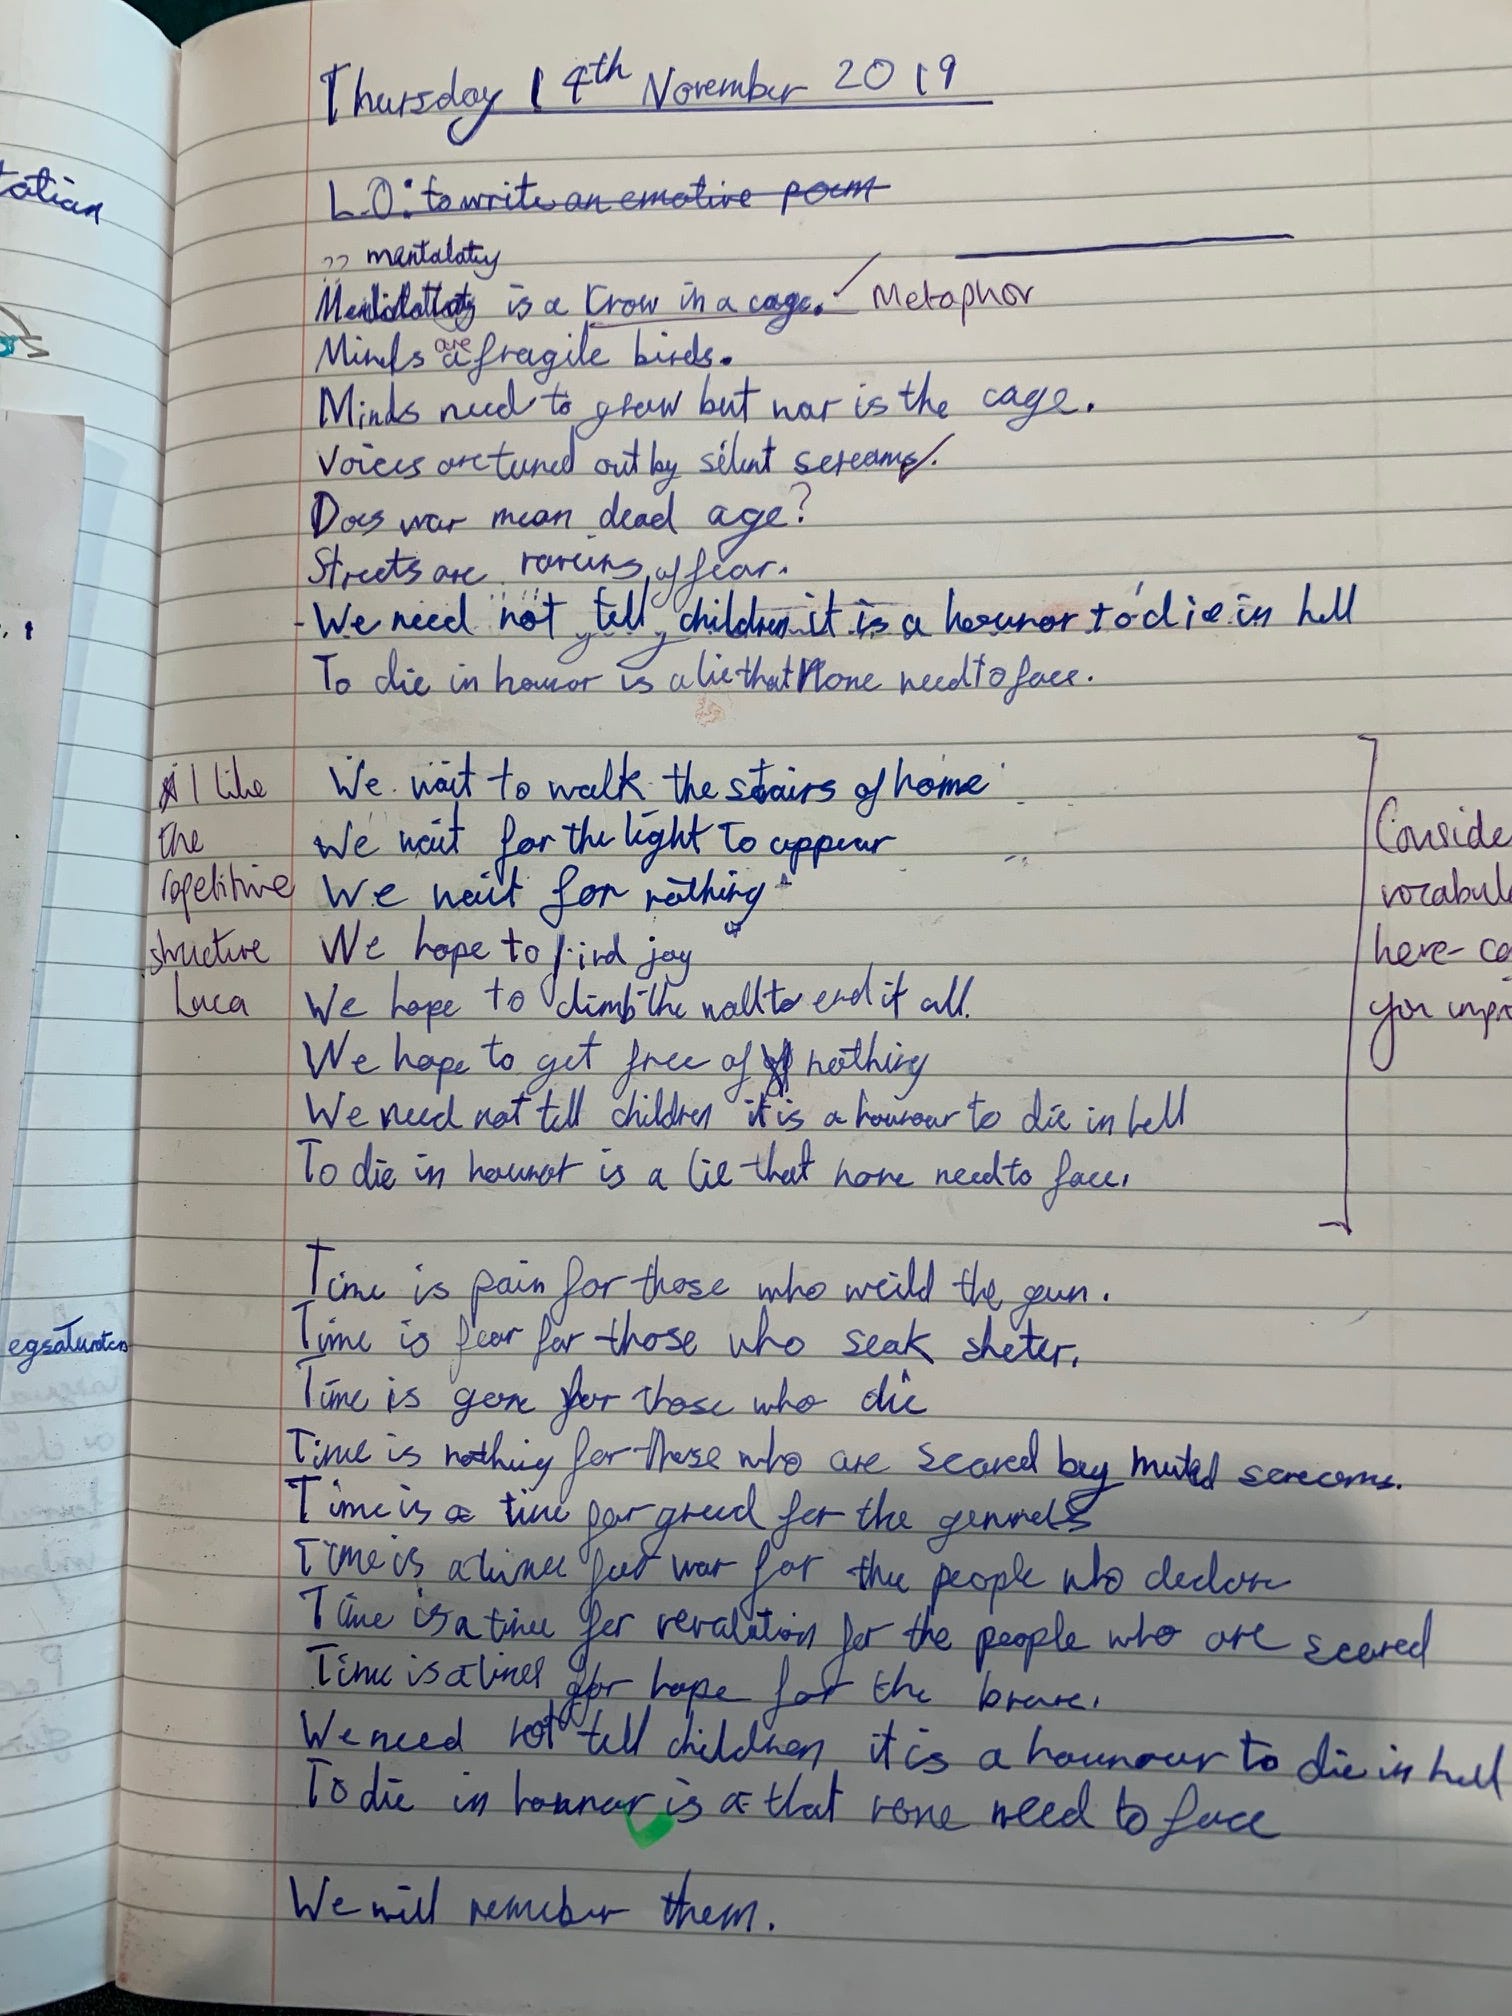 Thursday 14th November 2019
tation
L.O: to write an emotive poem
?? mentalaty
is a Crow in a cage. Metaphor
Minds are fragile birds.
Minds need to grow but war is the cage.
Voices are tuned out by silent screams.
Does war mean dead age?
Streets are of fear.
- We need not tell children it is a hounor to die in hell
To die in hounor is a lie that None need to face.
I like
the
repetitive
structure
Luca
We wait to walk the stairs of home
We wait for the light to appear
We wait for nothing
We hope to find joy
We hope to climb the wall to end it all.
We hope to get free of nothing
We need not tell children it is a hounour to die in hell
To die in hounor is a lie that none need to face.
Conside
vocabul
here- co
you impr
Time is pain for those who weild the gun.
Time is fear for those who seak sheter.
Time is gone for those who die
Time is nothing for those who are scared by muted screams.
Time is a time for greed for the generels
Time is a time for war for the people who declare
Time is a time for revalation for the people who are scared
Time is a time for hope for the brave.
We need not tell children it is a hounour to die in hell
To die in hounor is a that none need to face
We will remember them.